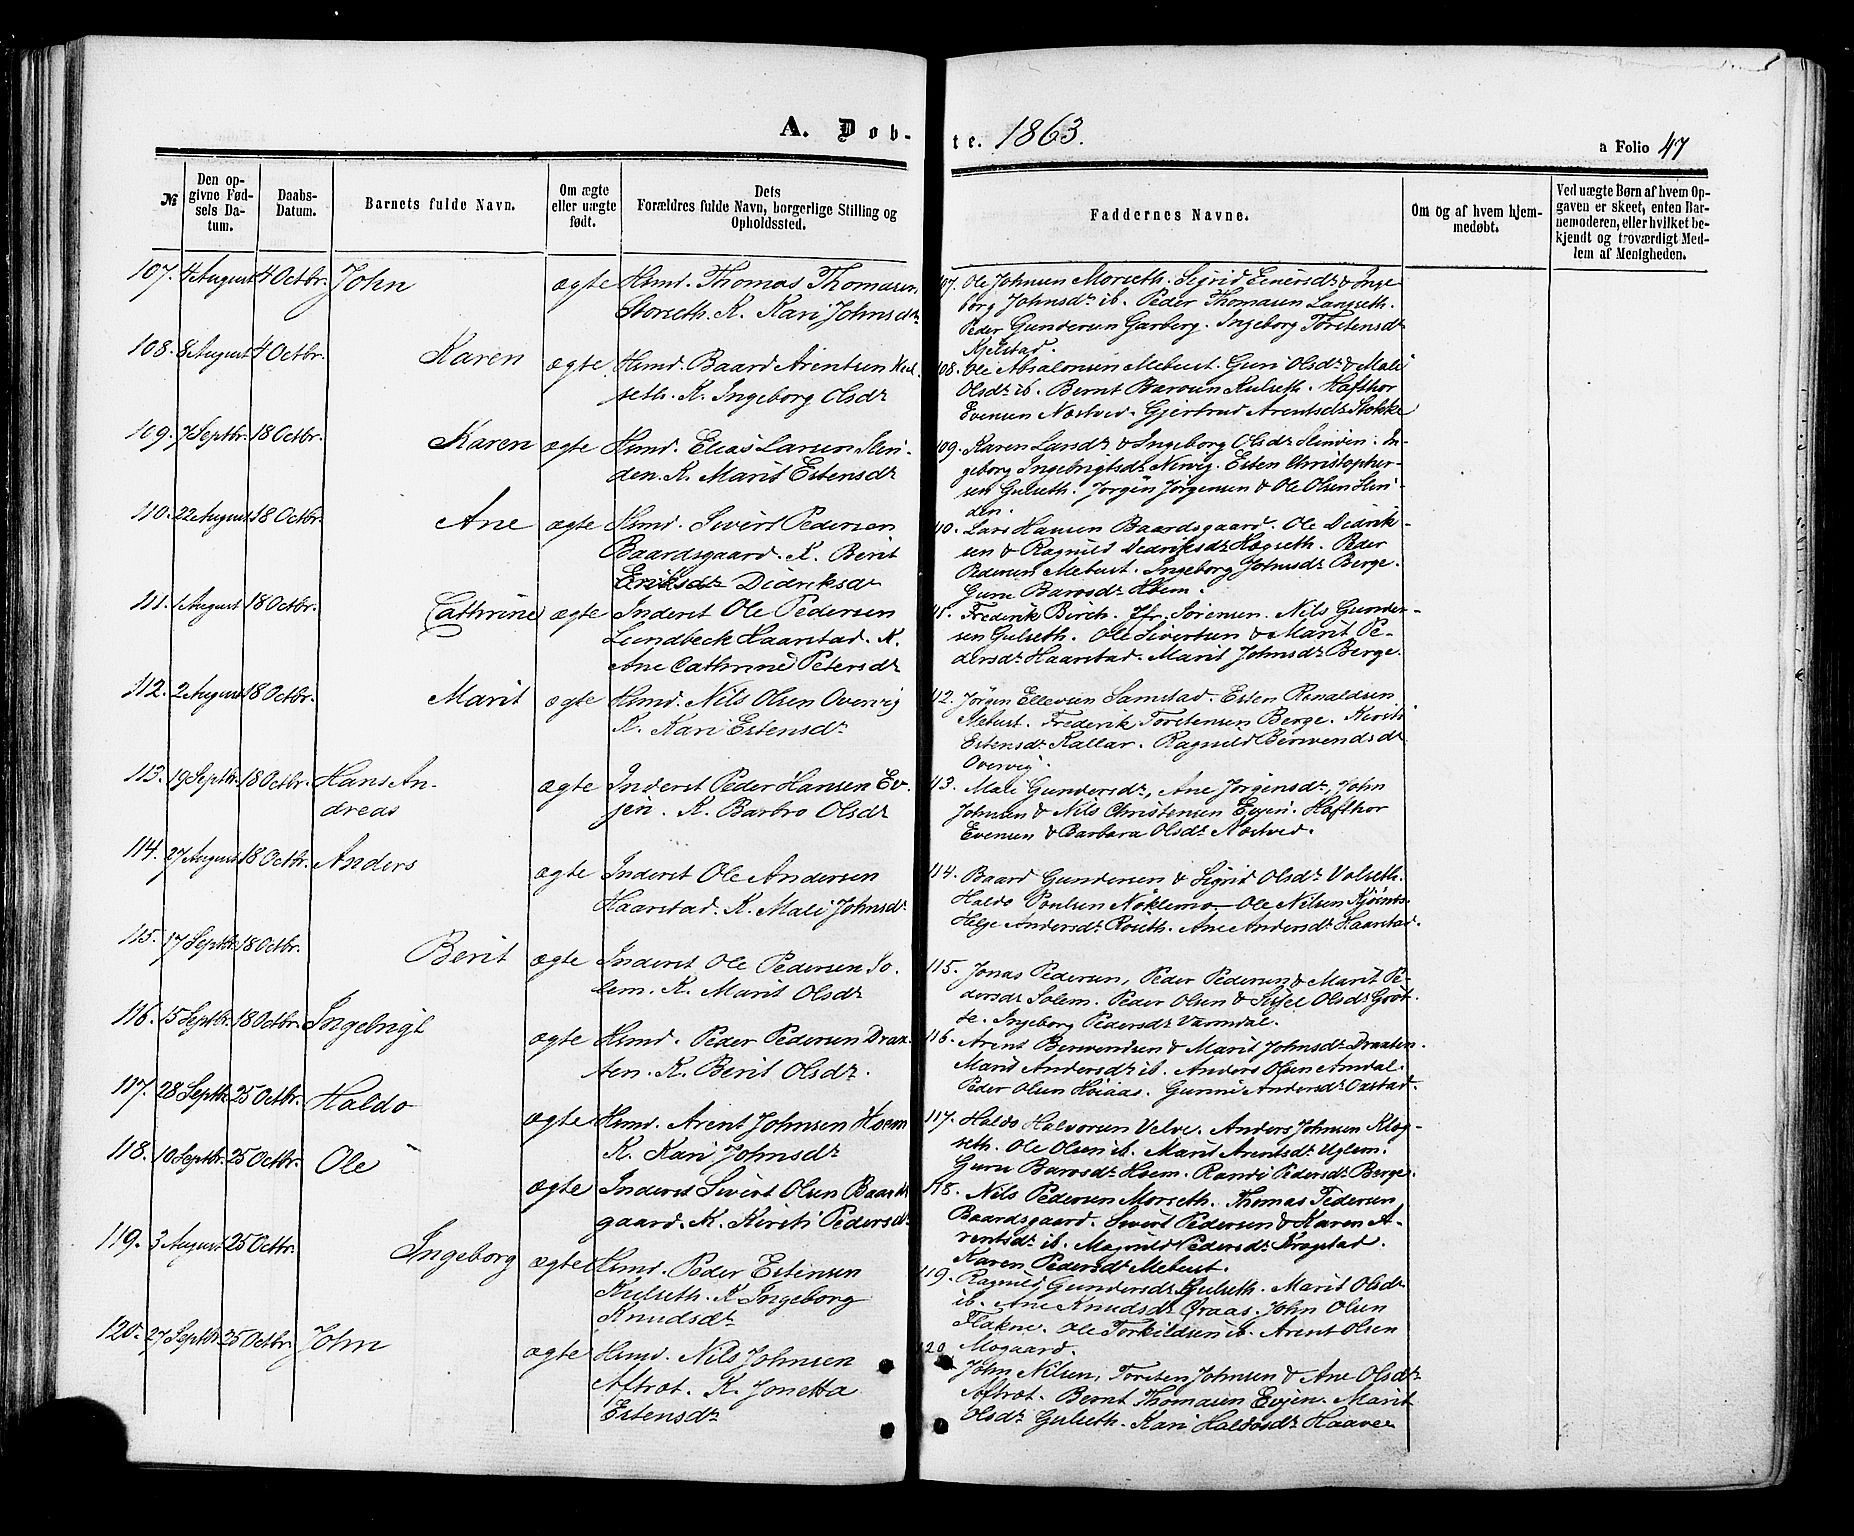 A. Døb-
te. 1863.
a Folio 47
№
Den op-
givne Fød-
sels Da-
tum.
Daabs-
Datum.
Barnets fulde Navn.
Om ægte
eller uægte
født.
Dets
Forældres fulde Navn, borgerlige Stilling og
Opholdssted.
Faddernes Navne.
Om og af hvem hjem-
medøbt.
Ved uægte Børn af hvem Op-
gaven er skeet, enten Bar-
nemoderen, eller hvilket be-
kjendt og troværdigt Med-
lem af Menigheden.
107. 4 August 4 Octbr. John ægte Hsmd. Thomas Thomasen
Storseth. K. Kari Johnsdr
107. Ole Johnsen Morseth. Sigrid Einersdr & Inge
borg Johnsdr ib. Peder Thomasen Langseth.
Peder Gundersen Garberg. Ingeborg Torstensdr
Kjelstad.
108. 8 August 4 Octbr. Karen ægte. Hsmd. Baard Arentsen Kul-
seth. K. Ingeborg Olsdr
108. Ole Absalonsen Mebust. Guri Olsdr & Mali
Olsdr ib. Bernt Barosen Kulseth. Hafthor
Evensen Næstved. Gjertrud Arentsdr Stokke
109. 7 Septbr. 18 Octbr. Karen ægte Hsmd. Elias Larsen Slin-
den. K. Marit Estensdr
109. Karen Larsdr & Ingeborg Olsdr Slinden. In-
geborg Ingebrigtsdr Nervig. Esten Christopher-
sen Gulseth. Jörgen Jörgensen & Ole Olsen Slin-
den.
110. 22 August 18 Octbr. Ane ægte Hsmd. Sivert Pedersen
Baardsgaard. K. Berit
Eriksdr Didriksdr
110. Lars Hansen Baardsgaard. Ole Didrik-
sen & Ragnild Dedriksdr Hogseth. Peder
Pedersen Mebust. Ingeborg Johnsdr Berge.
Guru Barosdr Hoem.
111. 1 August 18 Octbr. Cathrine ægte Inderst Ole Pedersen
Lundbeck Haarstad. K.
Ane Cathrine Petersdr
11. Frederik Birch. Jfr. Sörensen. Nils Gunder-
sen Gulseth. Ole Sivertsen & Marit Pe-
dersdr Haarstad. Marit Johnsdr Berge.
112. 2 August 18 Octbr. Marit ægte Hsmd. Nils Olsen Overvig
K. Kari Estensdr
112. Jörgen Ellevsen Samstad. Esten Renaldsen
Mebust. Frederik Torstensen Berge. Kirsti
Estensdr Kallar. Ragnild Bervendsdr
Overvig.
113. 19 Septbr. 18 Octbr. Hans An-
dreas ægte Inderst Peder Hansen Ev-
jen. K. Barbro Olsdr
113. Mali Gundersdr, Ane Jörgensdr, John
Johnsen & Nils Christensen Evjen. Hafthor
Evensen & Barbara Olsdr Næstved.
114. 27 August 18 Octbr. Anders ægte Inderst Ole Andersen
Haarstad. K. Mali Johnsdr
114. Baard Gundersen & Sigrid Olsdr Volseth.
Haldo Poulsen Nöklemo. Ole Nilsen
Helge Andersdr Rönth. Ane Andersdr Haarstad.
115. 17 Septbr. 18 Octbr. Berit ægte Inderst Ole Pedersen So-
lem. K. Marit Olsdr
115. Jonas Pedersen, Peder Pedersen & Marit Pe-
dersdr Solem. Peder Olsen & Sigel Olsdr Gröt-
te. Ingeborg Pedersdr Varmdal.
116. 15 Septbr. 18 Octbr. Ingebrigt ægte Hsmd. Peder Pedersen Draa-
ten. K. Berit Olsdr.
116. Arent Berwendsen & Marit Johnsdr Draaten.
Marit Andersdr ib. Anders Olsen Amdal.
Peder Olsen Höiaas. Gunni Andersdr Oastad.
117. 28 Septbr. 25 Octbr. Haldo ægte Hsmd. Arent Johnsen Hoem
K. Kari Johnsdr
117. Haldo Halvorsen Velve. Anders Johnsen Klog-
seth. Ole Olsen ib. Marit Arentsdr Uglem.
Guru Barosdr Hoem. Randi Pedersdr Berge.
118. 10 Septbr. 25 Octbr. Ole ægte Inderst Sivert Olsen Baards-
gaard. K. Kirsti Pedersdr
118. Nils Pedersen Morseth. Thomas Pedersen
Baardsgaard. Sivert Pedersen & Karen A-
rentsdr ib. Magnild Pedersdr Krogstad.
Karen Pedersdr Mebust.
119. 3 August 25 Octbr. Ingeborg ægte Hsmd. Peder Estensen
Kulseth. K. Ingeborg
Knudsdr
119. Ragnild Gundersdr Gulseth. Marit Olsdr
ib. Ane Knudsdr Øraas. John Olsen
Flakne. Ole Torkildsen ib. Arent Olsen
Mogaard.
120. 27 Septbr. 25 Octbr. John ægte Hsmd. Nils Johnsen
Aftrøt. K. Jonetta
Estensdr
120. John Nilsen, Torsten Johnsen & Ane Olsdr
Aftrøt. Bernt Thomasen Evjen. Marit
Olsdr Gulseth. Kari Haldosdr Haaven